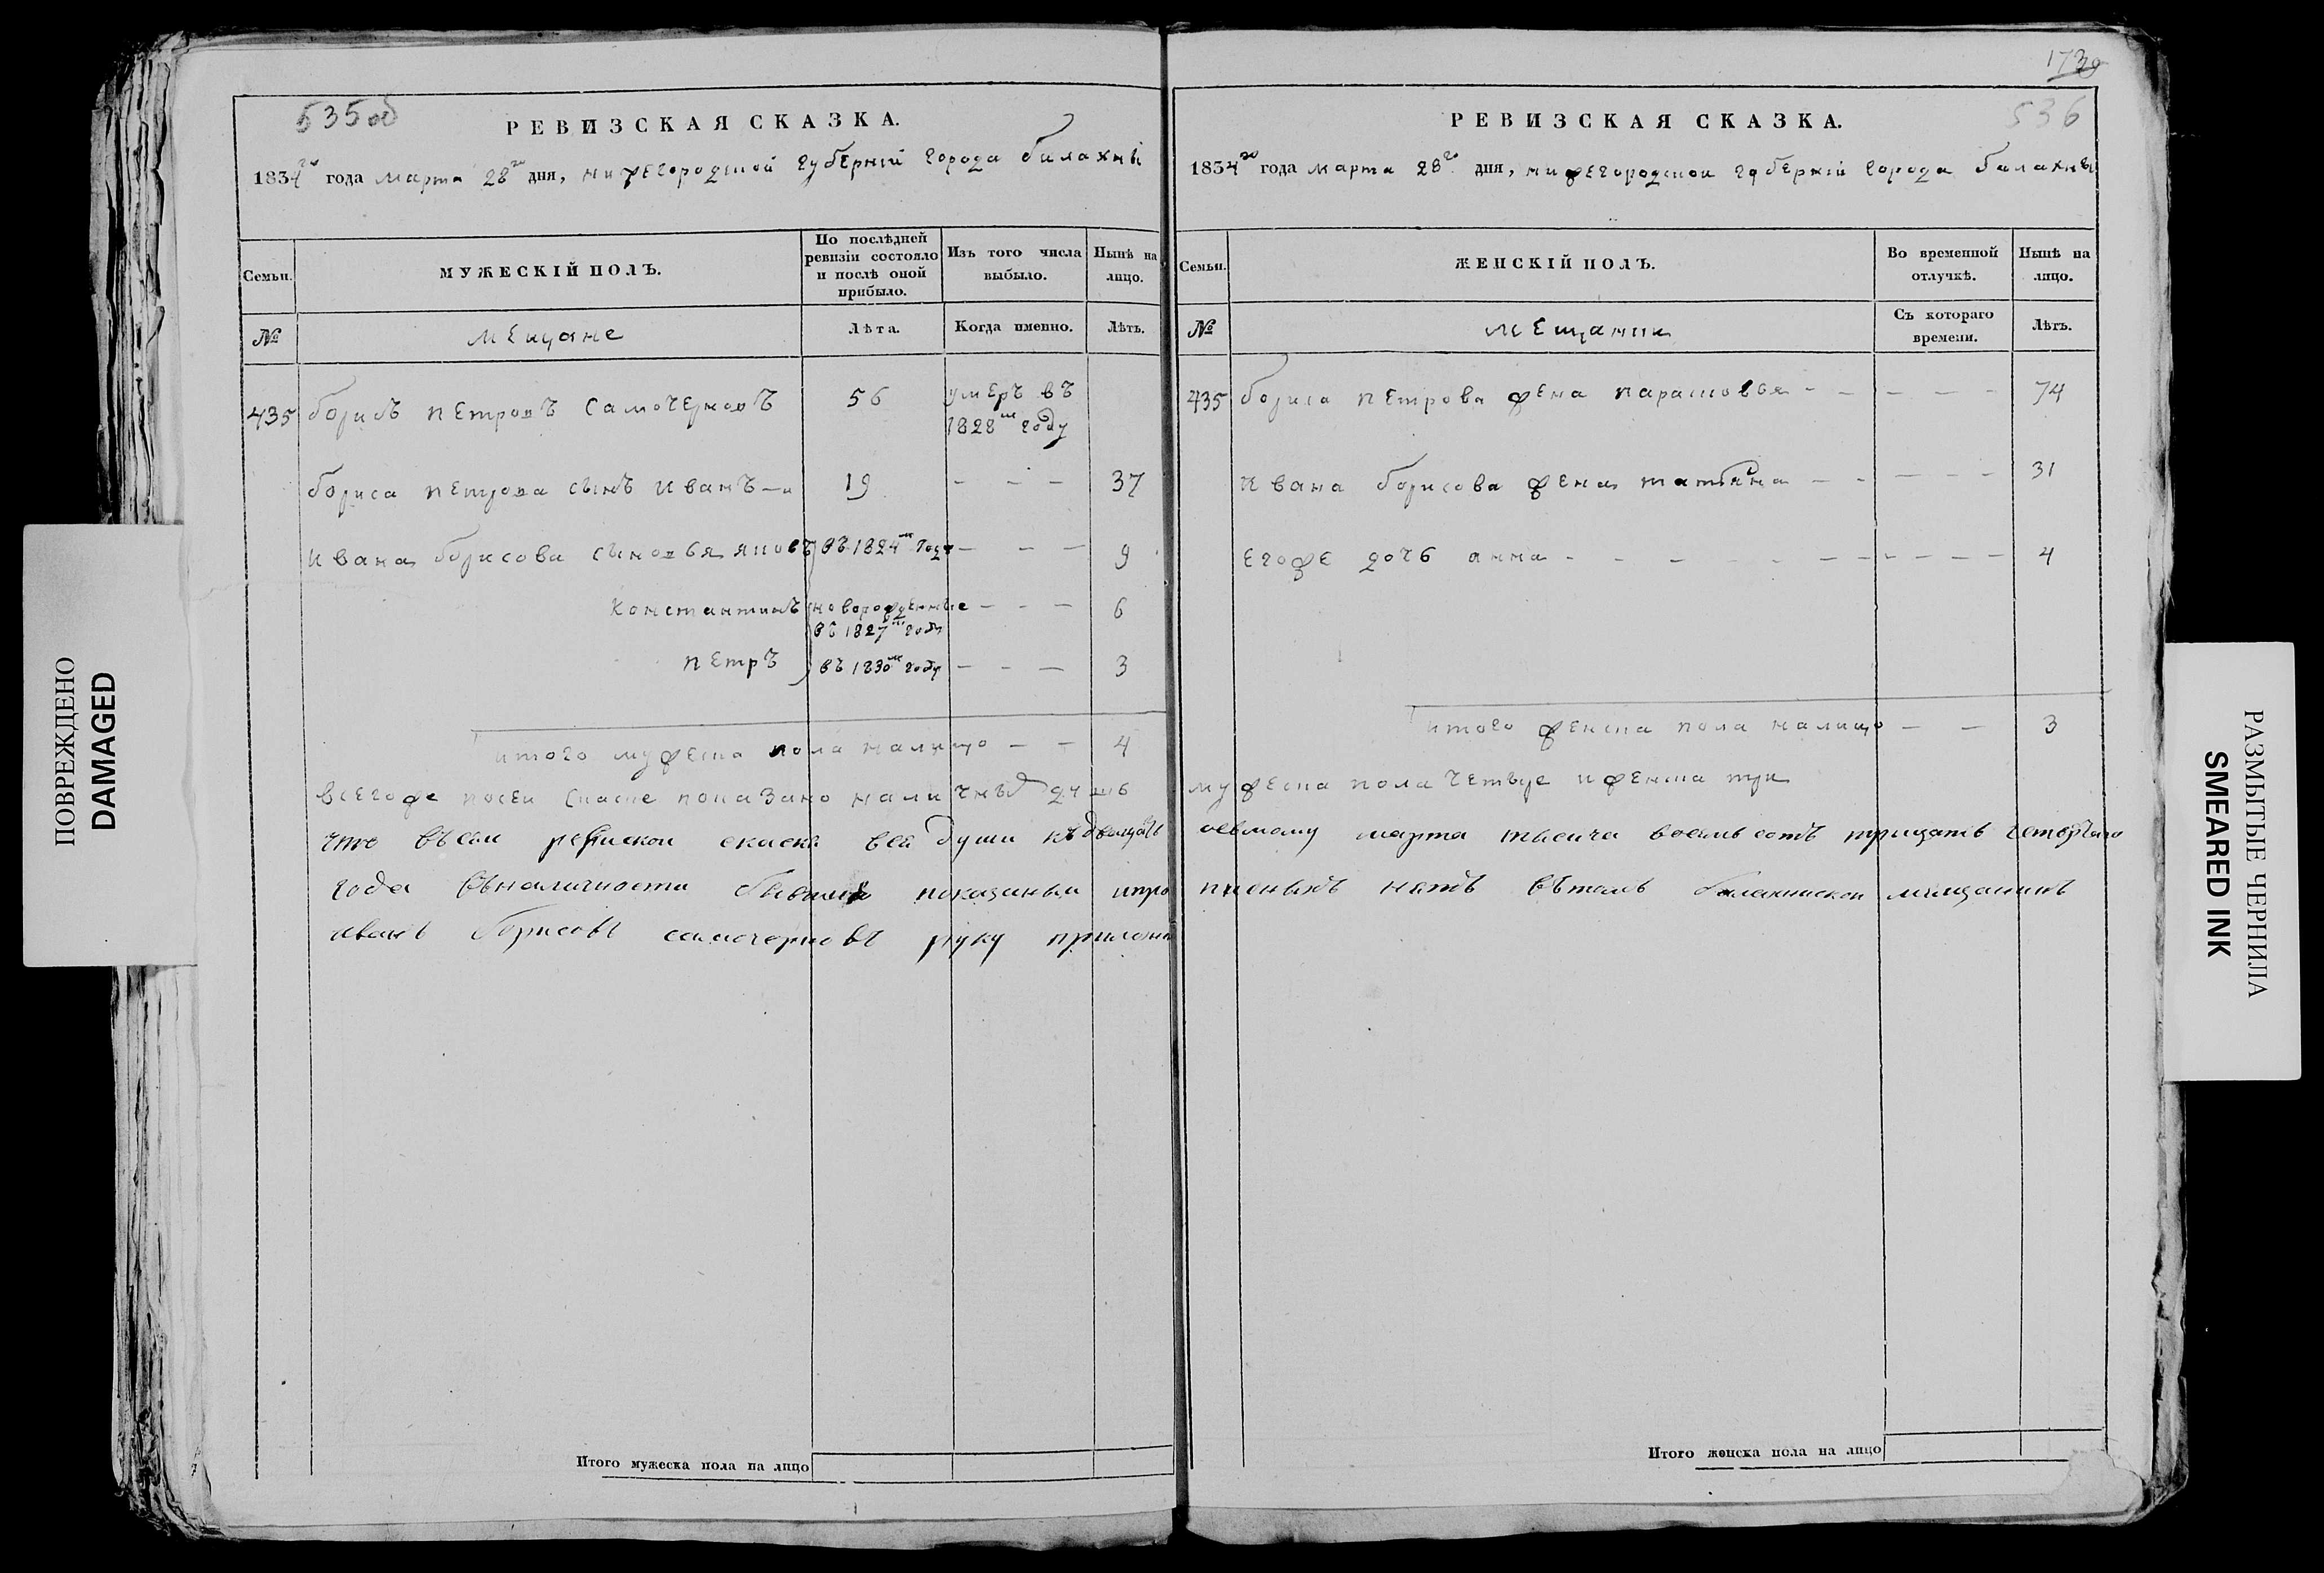 535об
РЕВИЗСКАЯ СКАЗКА.
1834го года марта 28го дня, нижегородской губерніи города балахны
Семьи.
МУЖЕСКІЙ ПОЛЪ.
По послѣдней
ревизіи состояло
и послѣ оной
прибыло.
Изъ того числа
выбыло.
Нынѣ на
лицо.
№
мещане
Лѣта.
Когда именно.
Лѣтъ.
435 борисъ петровъ самочерновъ 56 умеръ въ
1828м году
бориса петрова сынъ иванъ 19 — — — 37
ивана борисова сыновья яковъ въ 1824м году — — — 9
константинъ новорожденные — — — 6
въ 1827м году
петръ въ 1830м году — — — 3
итого мужеска пола налицо — — 4
всегоже посеи скаске показано наличныхъ душъ
что въсеи ревискои скаски все души къдватцать
года въналичности бывшия показаныи ипро
иванъ борисовъ самочерновъ руку приложи
1739
536
РЕВИЗСКАЯ СКАЗКА.
1834го года марта 28го дня, нижегородскои губерніи города балахны
Семьи.
ЖЕНСКІЙ ПОЛЪ.
Во временной
отлучкѣ.
Нынѣ на
лицо.
№
мещанки
Съ котораго
времени.
Лѣтъ.
435 бориса петрова жена парасковья — — — — — 74
ивана борисова жена татьяна — — — — — 31
егоже дочь анна — — — — — — — — — 4
итого женска пола налицо — — 3
мужеска пола четыре иженска три
осьмому марта тысича восемь сотъ тритцать четвертаго
писныхъ нетъ вътомъ балахнскои мещанинъ
Итого мужеска пола на лицо
Итого женска пола на лицо
ПОВРЕЖДЕНО
DAMAGED
РАЗМЫТЫЕ ЧЕРНИЛА
SMEARED INK